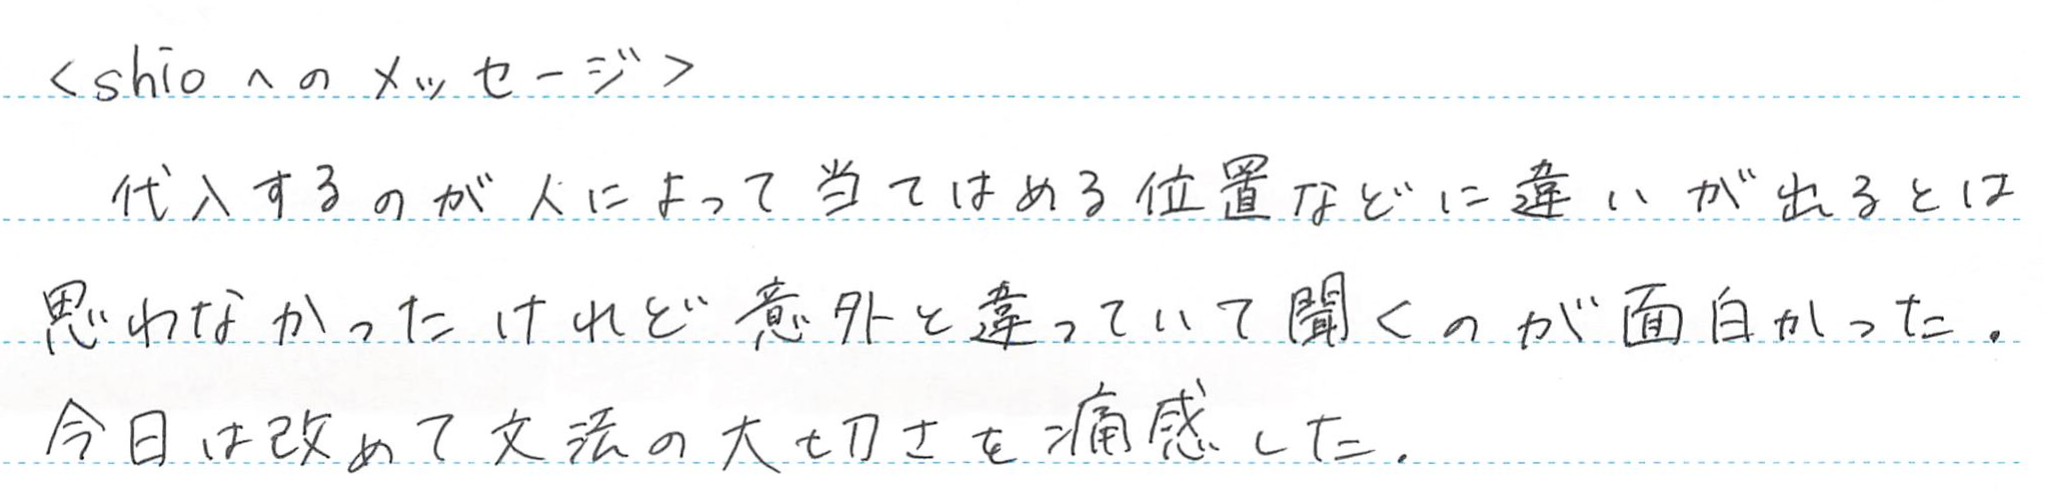 <shioへのメッセージ>
代入するのが人によって当てはめる位置などに違いが出るとは
思わなかったけれど意外と違っていて聞くのが面白かった.
今日は改めて文法の大切さを痛感した.